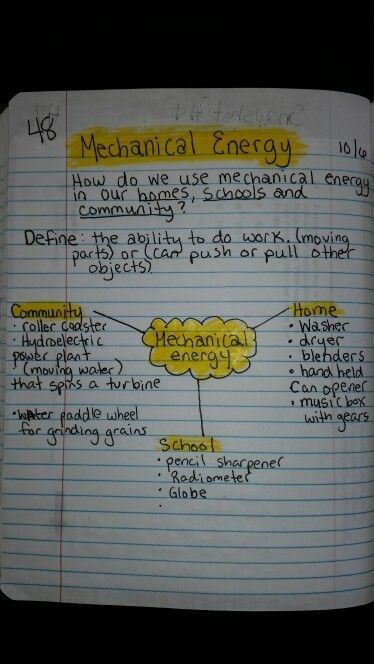 48
Mechanical Energy
10/6
How do we use mechanical energy
in our homes, schools and
community?
Define: the ability to do work. (moving
parts) or (can push or pull other
objects)
Community
• roller coaster
• Hydroelectric
power plant
(moving water)
that spins a turbine
• Water paddle wheel
for grinding grains
Mechanical
energy
Home
• Washer
• dryer
• blenders
• hand held
Can opener
• music box
with gears
School
• pencil sharpener
• Radiometer
• Globe
•